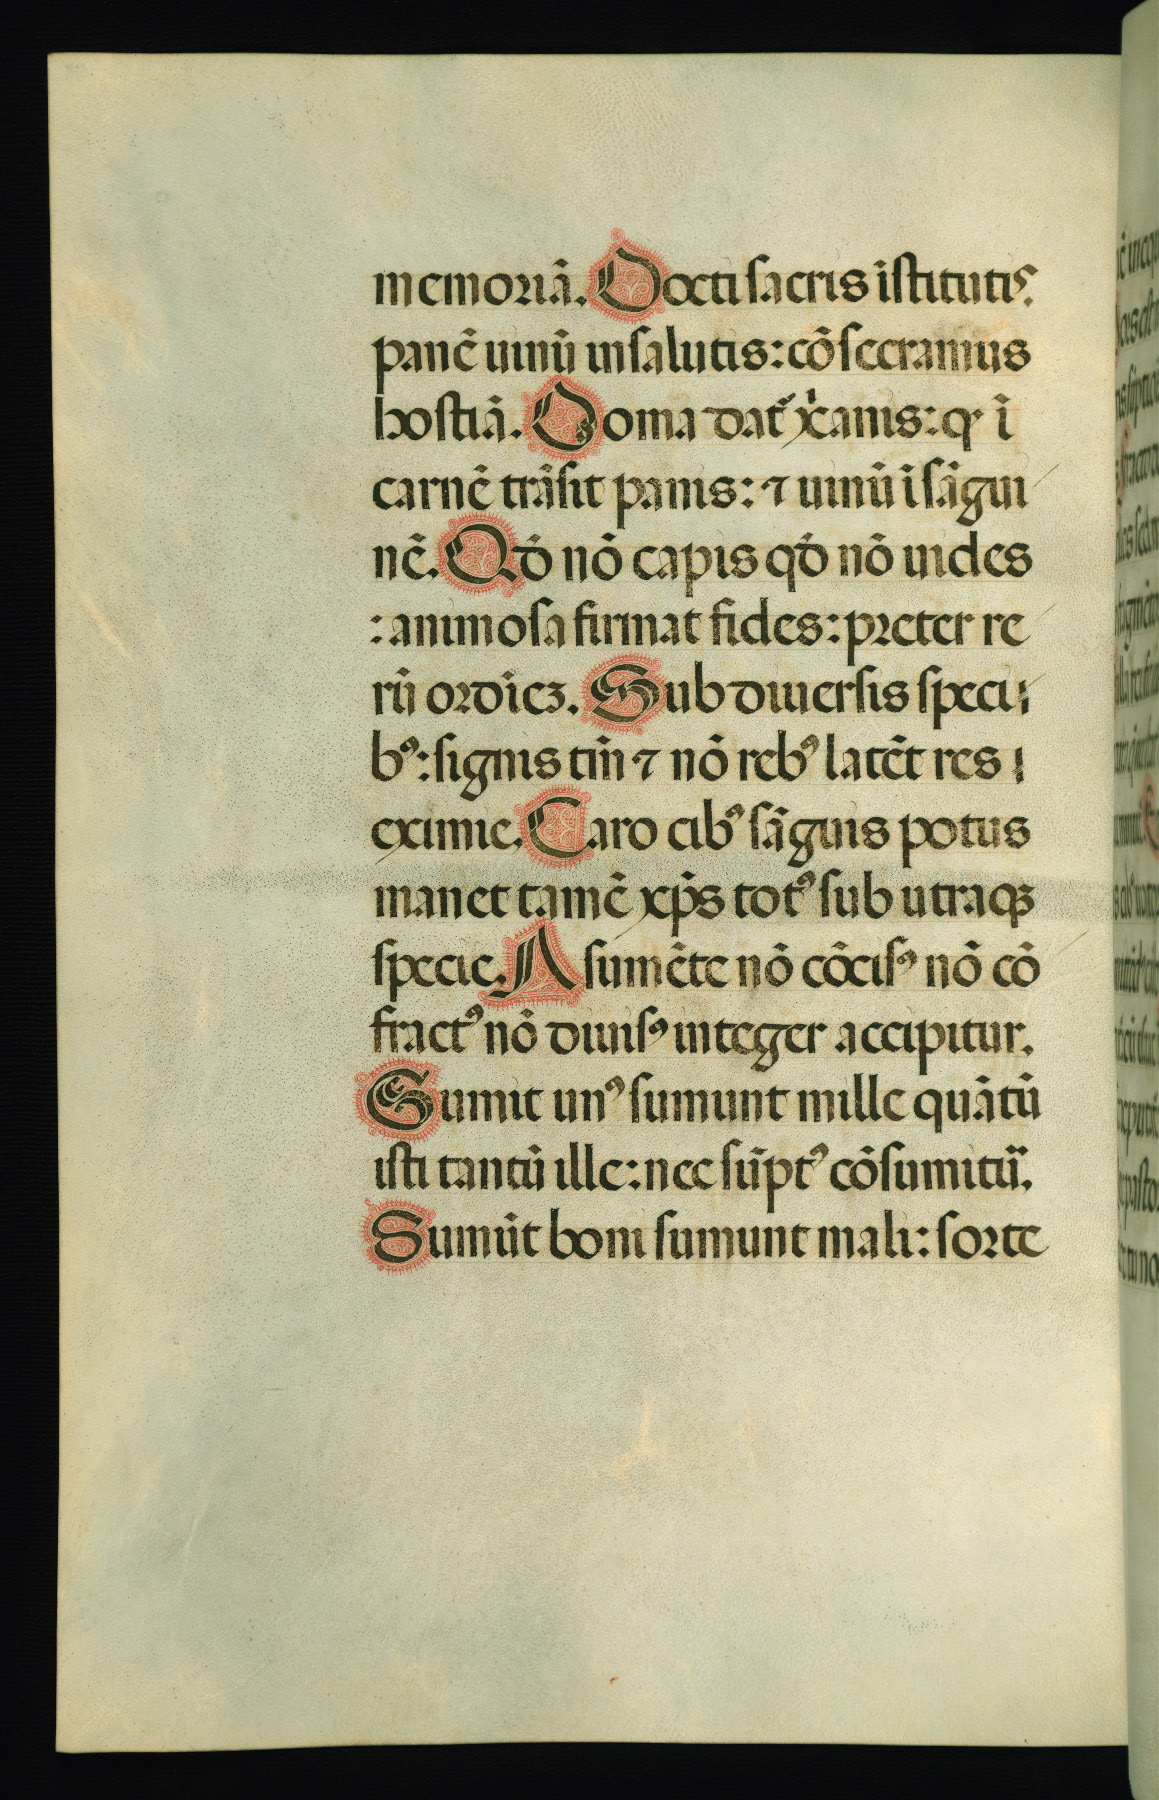 memoriā. Docti sacris īstitutis.
panē uinū in salutis: cōsecramus
hostiā. Dogma dat᷑ xr̄anis: ꝙ ī
carnē trāsit panis: ⁊ uinū ī sāgui
nē. Qd̄ nō capis qd̄ nō uides
: animosa firmat fides: preter re
rū ordīeꝫ. Sub diuersis speci
bꝰ: signis tm̄ ⁊ nō rebꝰ latēt res
eximie. Caro cibꝰ sāguis potus
manet tamē xp̄s totꝰ sub utraqꝫ
specie. A sumēte nō cōcisꝰ nō cō
fractꝰ nō diuisꝰ integer accipitur.
Sumit unꝰ sumunt mille quātū
isti tantū ille: nec sūptꝰ cōsumitur̄.
Sumūt boni sumunt mali: sorte